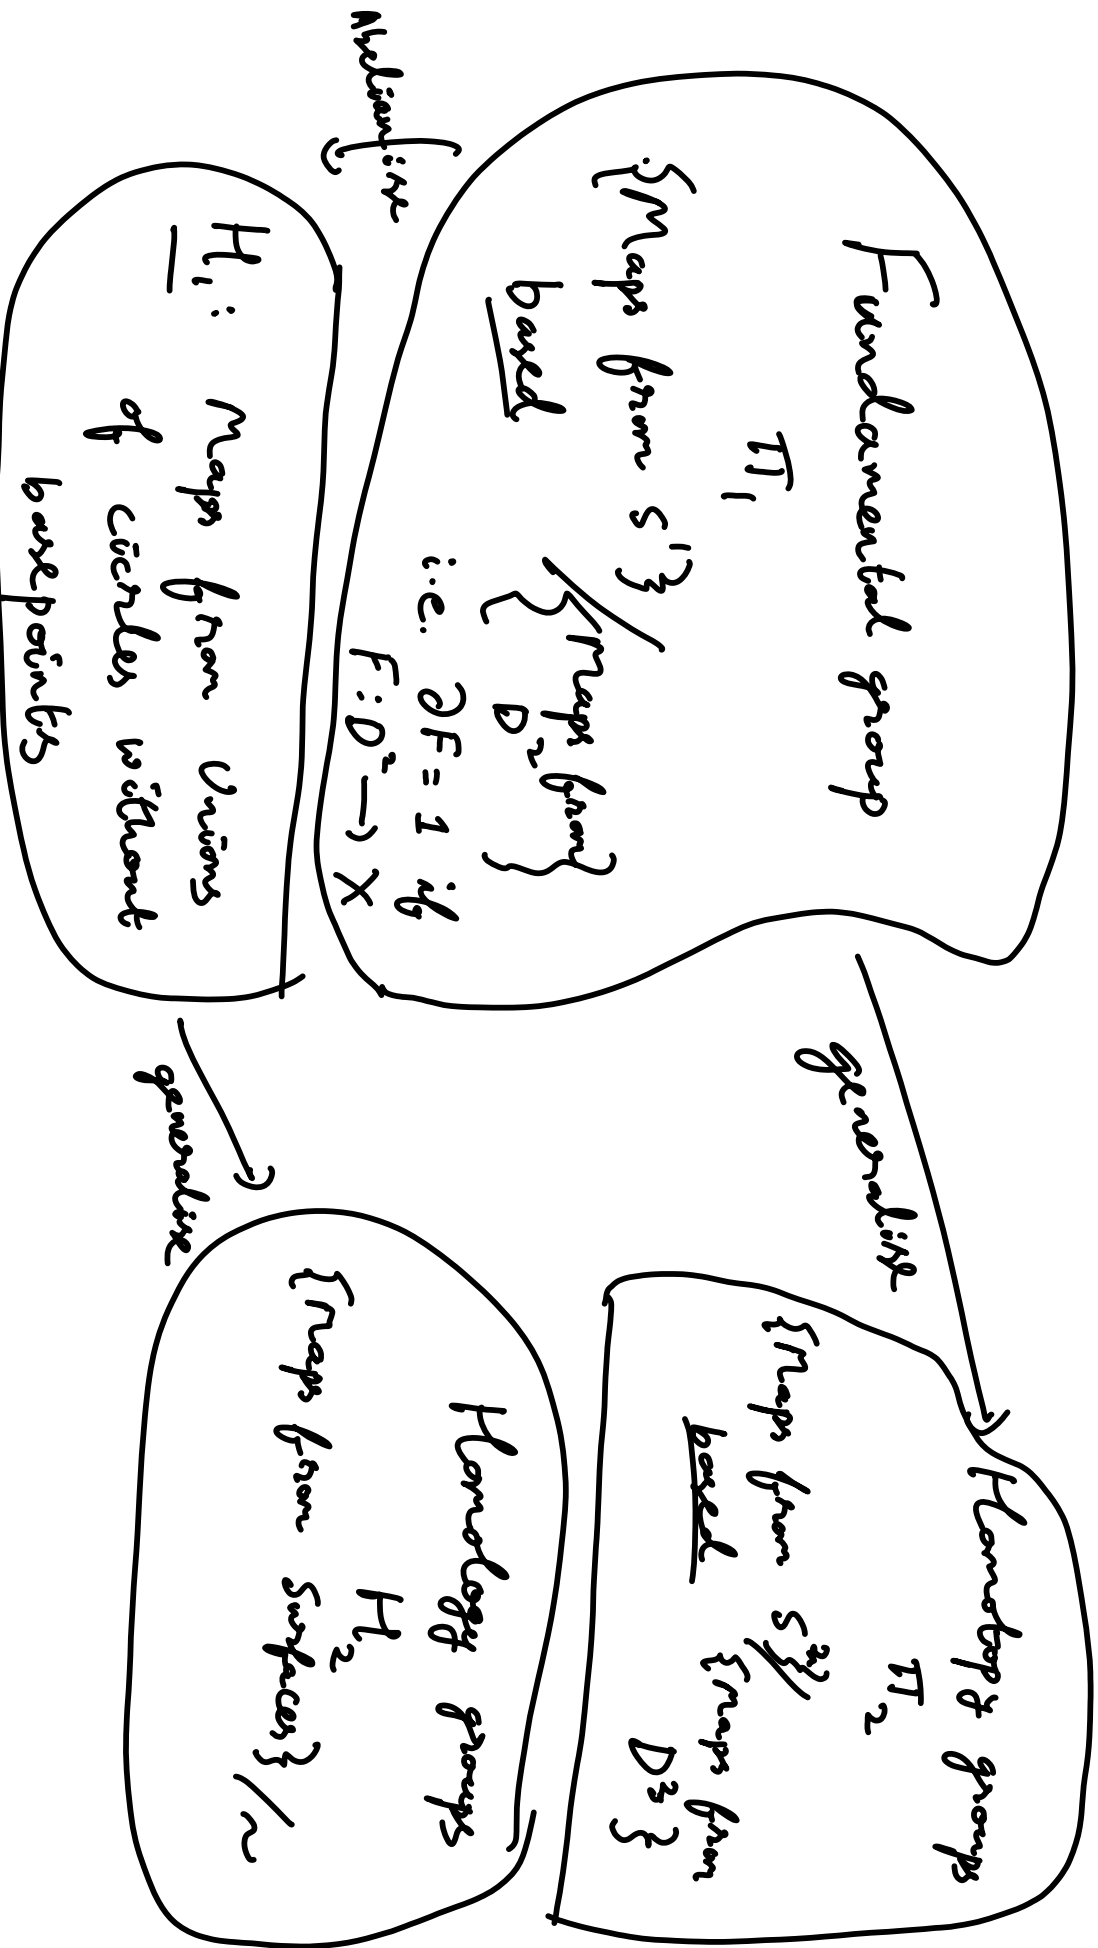 Fundamental group
π₁
{Maps from S¹} / {Maps from
based D² }
i.e. ∂F = 1 if
F : D² → X
Abelianise
H₁ : Maps from Unions
of circles without
basepoints
generalise
Homotopy groups
π₂
{Maps from S²} / {Maps from
based D³ }
generalise
Homology groups
H₂
{Maps from Surfaces} / ~